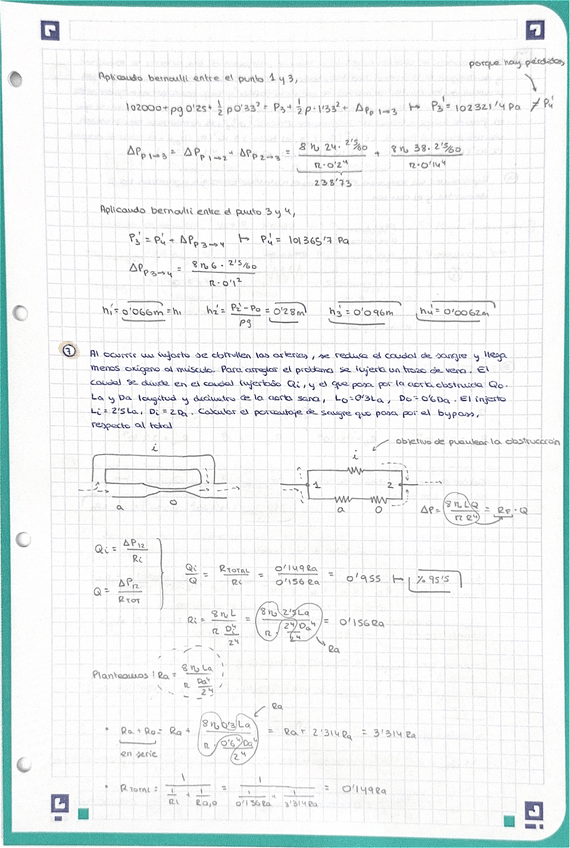 porque hay pérdidas
Aplicando bernoulli entre el punto 1 y 3,
102000 + ρg 0'25 + 1/2 ρ 0'33² = P3 + 1/2 ρ · 1'33² + ΔPp 1→3 ↦ P3' = 102321'4 Pa ≠ P4'
ΔPp 1→3 = ΔPp 1→2 + ΔPp 2→3 = 8η 24 · 2'5/60 / π · 0'2⁴ + 8η 38 · 2'5/60 / π · 0'14⁴
238'73
Aplicando bernoulli entre el punto 3 y 4,
P3' = P4' + ΔPp 3→4 ↦ P4' = 101365'7 Pa
ΔPp 3→4 = 8η 6 · 2'5/60 / π · 0'1²
h1' = 0'066m = h1 h2' = P2' - P0 / ρg = 0'28m h3' = 0'096m h4' = 0'0062m
7 Al ocurrir un infarto se obstruyen las arterias, se reduce el caudal de sangre y llega
menos oxígeno al músculo. Para arreglar el problema se injerta un trozo de vena. El
caudal se divide en el caudal injertado Qi, y el que pasa por la aorta obstruida Qo.
La y Da longitud y diámetro de la aorta sana, Lo = 0'3La, Do = 0'6Da. El injerto
Li = 2'5La, Di = 2Da. Calcular el porcentaje de sangre que pasa por el bypass,
respecto al total
objetivo de puentear la obstrucción
i
a o
i
1 2
a o
ΔP = 8ηLQ / πR⁴ = RF · Q
Qi = ΔP12 / Ri
Q = ΔP12 / RTOT
Qi / Q = RTOTAL / Ri = 0'149Ra / 0'156Ra = 0'955 ↦ % 95'5
Ri = 8ηL / π Di⁴/2⁴ = 8η 2'5La / π · 2⁴Da⁴/2⁴ = 0'156Ra
Ra
Planteamos: Ra = 8ηLa / π Da⁴/2⁴
Ra
• Ra + Ro = Ra + 8η 0'3La / π · 0'6⁴Da⁴/2⁴ = Ra + 2'314Ra = 3'314Ra
en serie
• RTOTAL = 1 / 1/Ri + 1/Ra,o = 1 / 1/0'156Ra + 1/3'314Ra = 0'149Ra